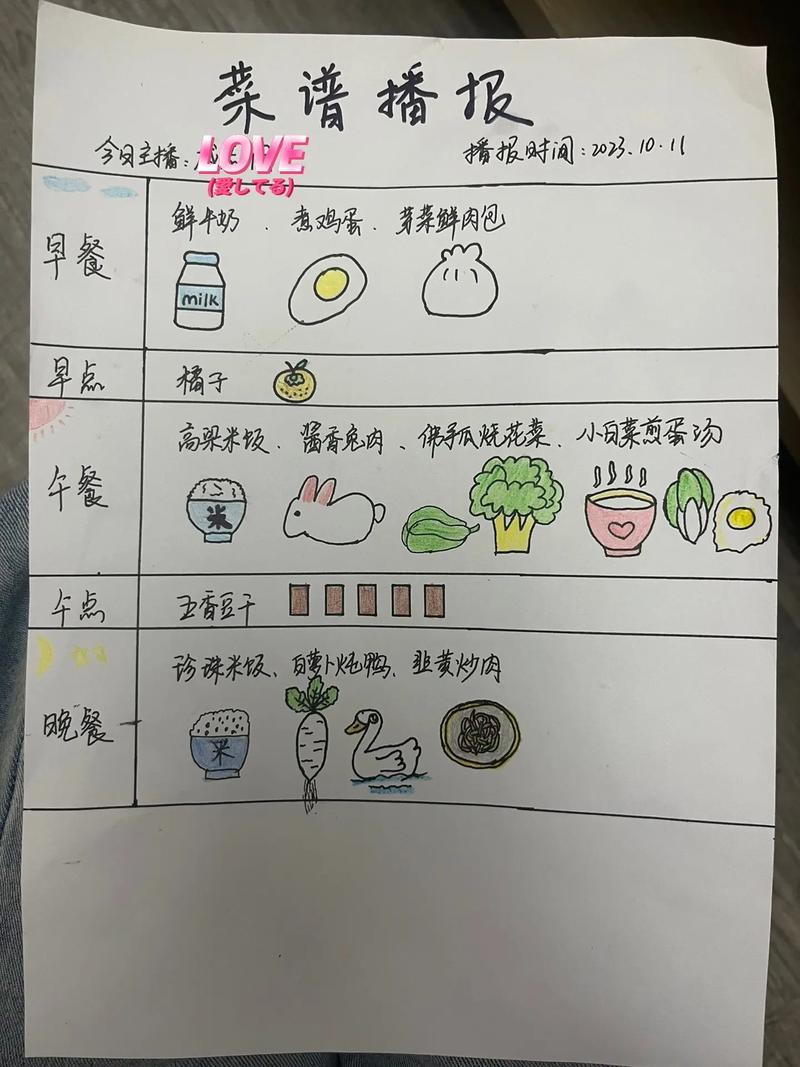 菜谱播报
今日主播: LOVE 播报时间:2023.10.11
(愛してる)
早餐 鲜牛奶、煮鸡蛋、芽菜鲜肉包
milk
早点 橘子
午餐 高梁米饭、酱香兔肉、佛手瓜烧花菜、小白菜煎蛋汤
米
午点 五香豆干
晚餐 珍珠米饭、白萝卜炖鸭、韭黄炒肉
米